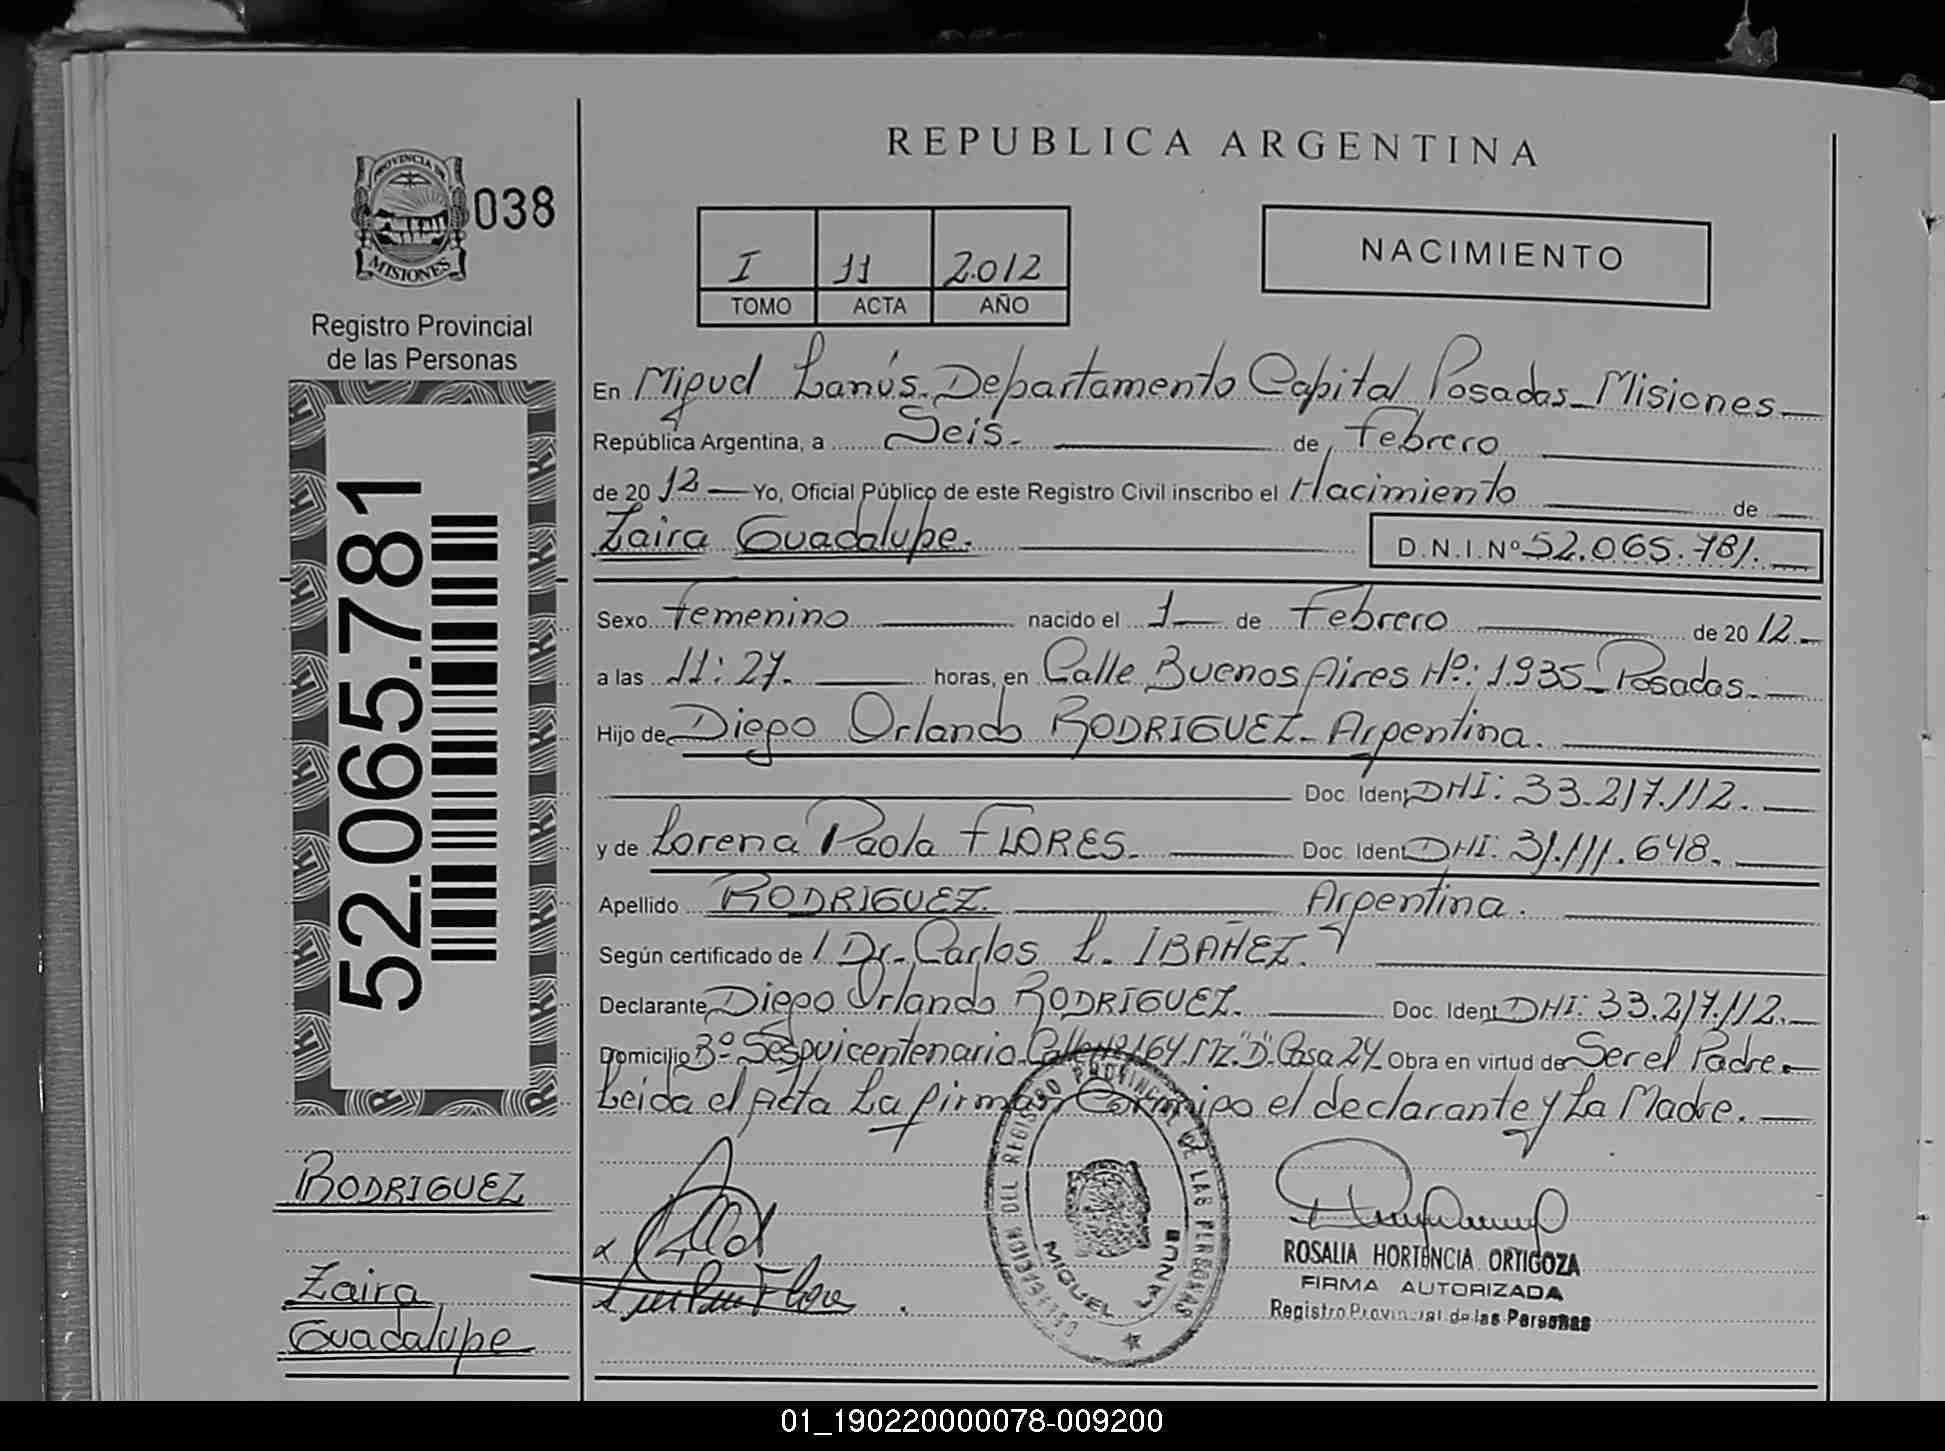 REPUBLICA ARGENTINA
PROVINCIA DE
MISIONES
038
I 11 2012
TOMO ACTA AÑO
NACIMIENTO
Registro Provincial
de las Personas
52.065.781
En Miguel Lanús. Departamento Capital Posadas - Misiones
República Argentina, a Seis. de Febrero
de 2012 Yo, Oficial Público de este Registro Civil inscribo el Nacimiento de
Zaira Guadalupe. D.N.I. Nº 52.065.781.
Sexo Femenino nacido el 1 de Febrero de 2012.
a las 11:27. horas, en Calle Buenos Aires Nº: 1.935 - Posadas.
Hijo de Diego Orlando RODRIGUEZ - Argentina.
Doc. Ident DNI: 33.217.112.
y de Lorena Paola FLORES. Doc. Ident DNI: 31.111.648.
Apellido RODRIGUEZ Argentina.
Según certificado de Dr. Carlos L. IBAÑEZ.
Declarante Diego Orlando RODRIGUEZ. Doc. Ident DNI: 33.217.112.
Domicilio Bº Sesquicentenario. Calle Nº 164. Mz. "D". Casa 24. Obra en virtud de Ser el Padre.
Leida el Acta La firman Conmigo el declarante y La Madre.
RODRIGUEZ
Zaira
Guadalupe
Flores
DEL REGISTRO PROVINCIAL DE LAS PERSONAS
MIGUEL LANUS
ROSALIA HORTENCIA ORTIGOZA
FIRMA AUTORIZADA
Registro Provincial de las Personas
01_190220000078-009200